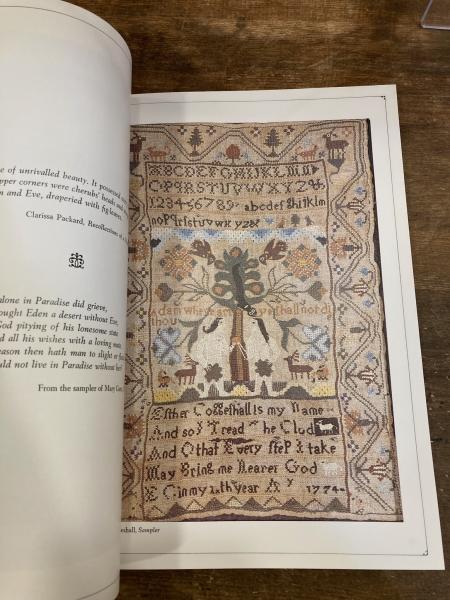 e of unrivalled beauty. It possessed
pper corners were cherubs' heads and
m and Eve, draperied with fig leaves.
Clarissa Packard, Recollections of a
alone in Paradise did grieve,
ought Eden a desert without Eve,
God pitying of his lonesome state
d all his wishes with a loving mate
eason then hath man to slight or
uld not live in Paradise without
From the sampler of Mary
ABCDEFGHIJKLMN
OPQRSTUVWXYZ&
123456789 abcdefghiklm
nopqrstuvwxyz
adam where
thou
Esther Coggeshall is my Name
And so I tread the Clod
And O that Every steP I take
May Bring me Nearer God
E C in my year
1774
eshall, Sampler